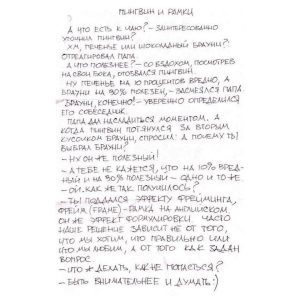 ПИНГВИН И РАМКИ
А ЧТО ЕСТЬ К ЧАЮ? – ЗАИНТЕРЕСОВАННО
УТОЧНИЛ ПИНГВИН.
ХМ, ПЕЧЕНЬЕ ИЛИ ШОКОЛАДНЫЙ БРАУНИ? –
ОТРЕАГИРОВАЛ ПАПА.
А ЧТО ПОЛЕЗНЕЕ? – СО ВЗДОХОМ, ПОСМОТРЕВ
НА СВОИ БОКА, ОТОЗВАЛСЯ ПИНГВИН.
НУ ПЕЧЕНЬЕ НА 10 ПРОЦЕНТОВ ВРЕДНО, А
БРАУНИ НА 90% ПОЛЕЗЕН, – ЗАСМЕЯЛСЯ ПАПА
БРАУНИ, КОНЕЧНО! – УВЕРЕННО ОПРЕДЕЛИЛСЯ
ЕГО СОБЕСЕДНИК.
ПАПА ДАЛ НАСЛАДИТЬСЯ МОМЕНТОМ. А
КОГДА ПИНГВИН ПОТЯНУЛСЯ ЗА ВТОРЫМ
КУСОЧКОМ БРАУНИ, СПРОСИЛ: А ПОЧЕМУ ТЫ
ВЫБРАЛ БРАУНИ?
– НУ ОН ЖЕ ПОЛЕЗНЫЙ!
– А ТЕБЕ НЕ КАЖЕТСЯ, ЧТО НА 10% ВРЕД-
НЫЙ И НА 90% ПОЛЕЗНЫЙ – ОДНО И ТО ЖЕ
– ОЙ. КАК ЖЕ ТАК ПОЛУЧИЛОСЬ?
– ТЫ ПОДДАЛСЯ ЭФФЕКТУ ФРЕЙМИНГА,
ФРЕЙМ (FRAME) – РАМКА НА АНГЛИЙСКОМ
ОН ЖЕ ЭФФЕКТ ФОРМУЛИРОВКИ. ЧАСТО
НАШЕ РЕШЕНИЕ ЗАВИСИТ НЕ ОТ ТОГО,
ЧТО МЫ ХОТИМ, ЧТО ПРАВИЛЬНО ИЛИ
ЧТО МЫ ЛЮБИМ, А ОТ ТОГО КАК ЗАДАН
ВОПРОС.
– ЧТО Ж ДЕЛАТЬ, КАК НЕ ПОПАСТЬСЯ?
– БЫТЬ ВНИМАТЕЛЬНЕЕ И ДУМАТЬ :)